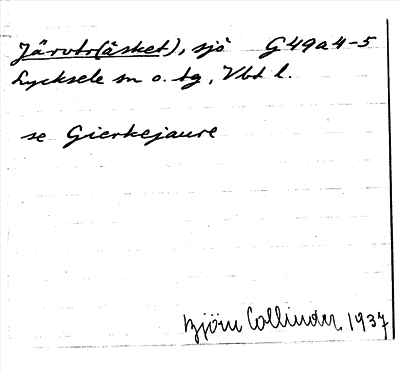 Järvtr(äsket), sjö G 49a 4-5
Lycksele sn o. tg, Vbt l.
se Gierkejaure
Björn Collinder, 1937